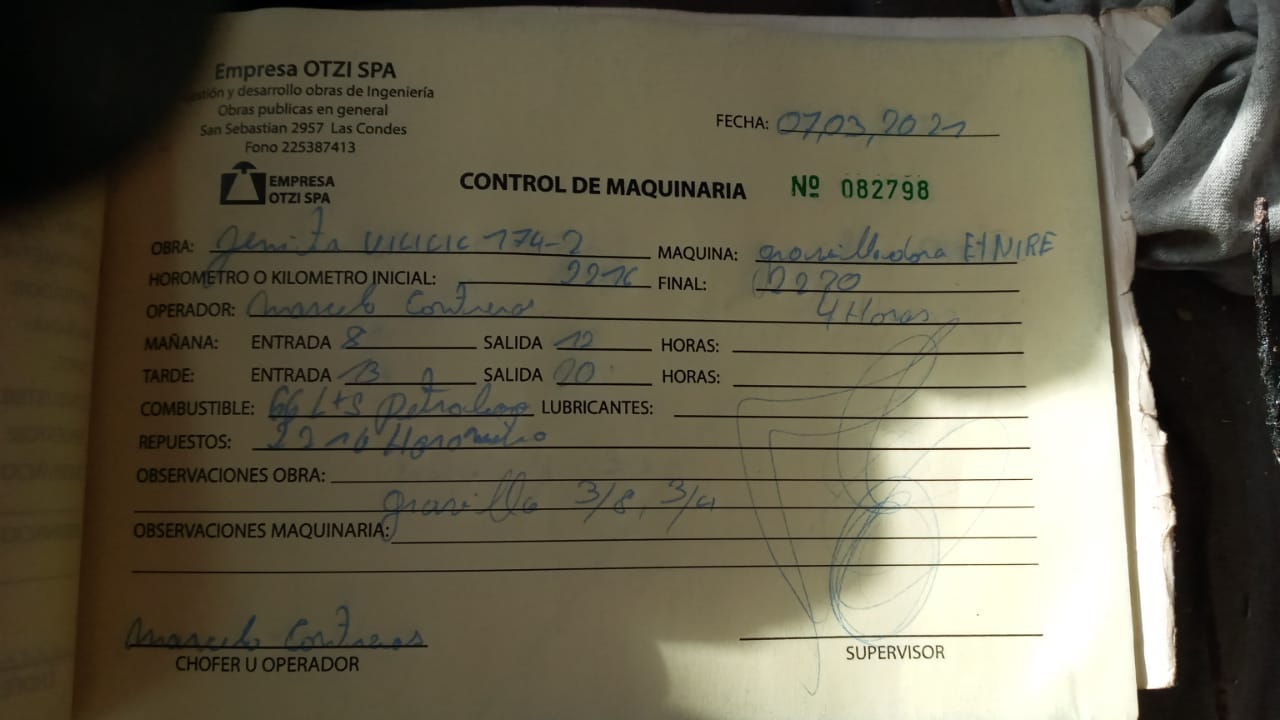 Empresa OTZI SPA
estión y desarrollo obras de Ingeniería
Obras publicas en general
San Sebastian 2957 Las Condes
Fono 225387413
FECHA: 07,03,2021
EMPRESA
OTZI SPA
CONTROL DE MAQUINARIA Nº 082798
OBRA: 174-2 MAQUINA: gravilladora
HOROMETRO O KILOMETRO INICIAL: 2216 FINAL: 2220
OPERADOR: Marcelo Contreras 4 Horas
MAÑANA: ENTRADA 8 SALIDA 12 HORAS:
TARDE: ENTRADA 13 SALIDA 20 HORAS:
COMBUSTIBLE: 66 Lts Petroleo LUBRICANTES:
REPUESTOS: 2216 Horometro
OBSERVACIONES OBRA:
gravilla 3/8, 3/4
OBSERVACIONES MAQUINARIA:
Marcelo Contreras
CHOFER U OPERADOR
SUPERVISOR